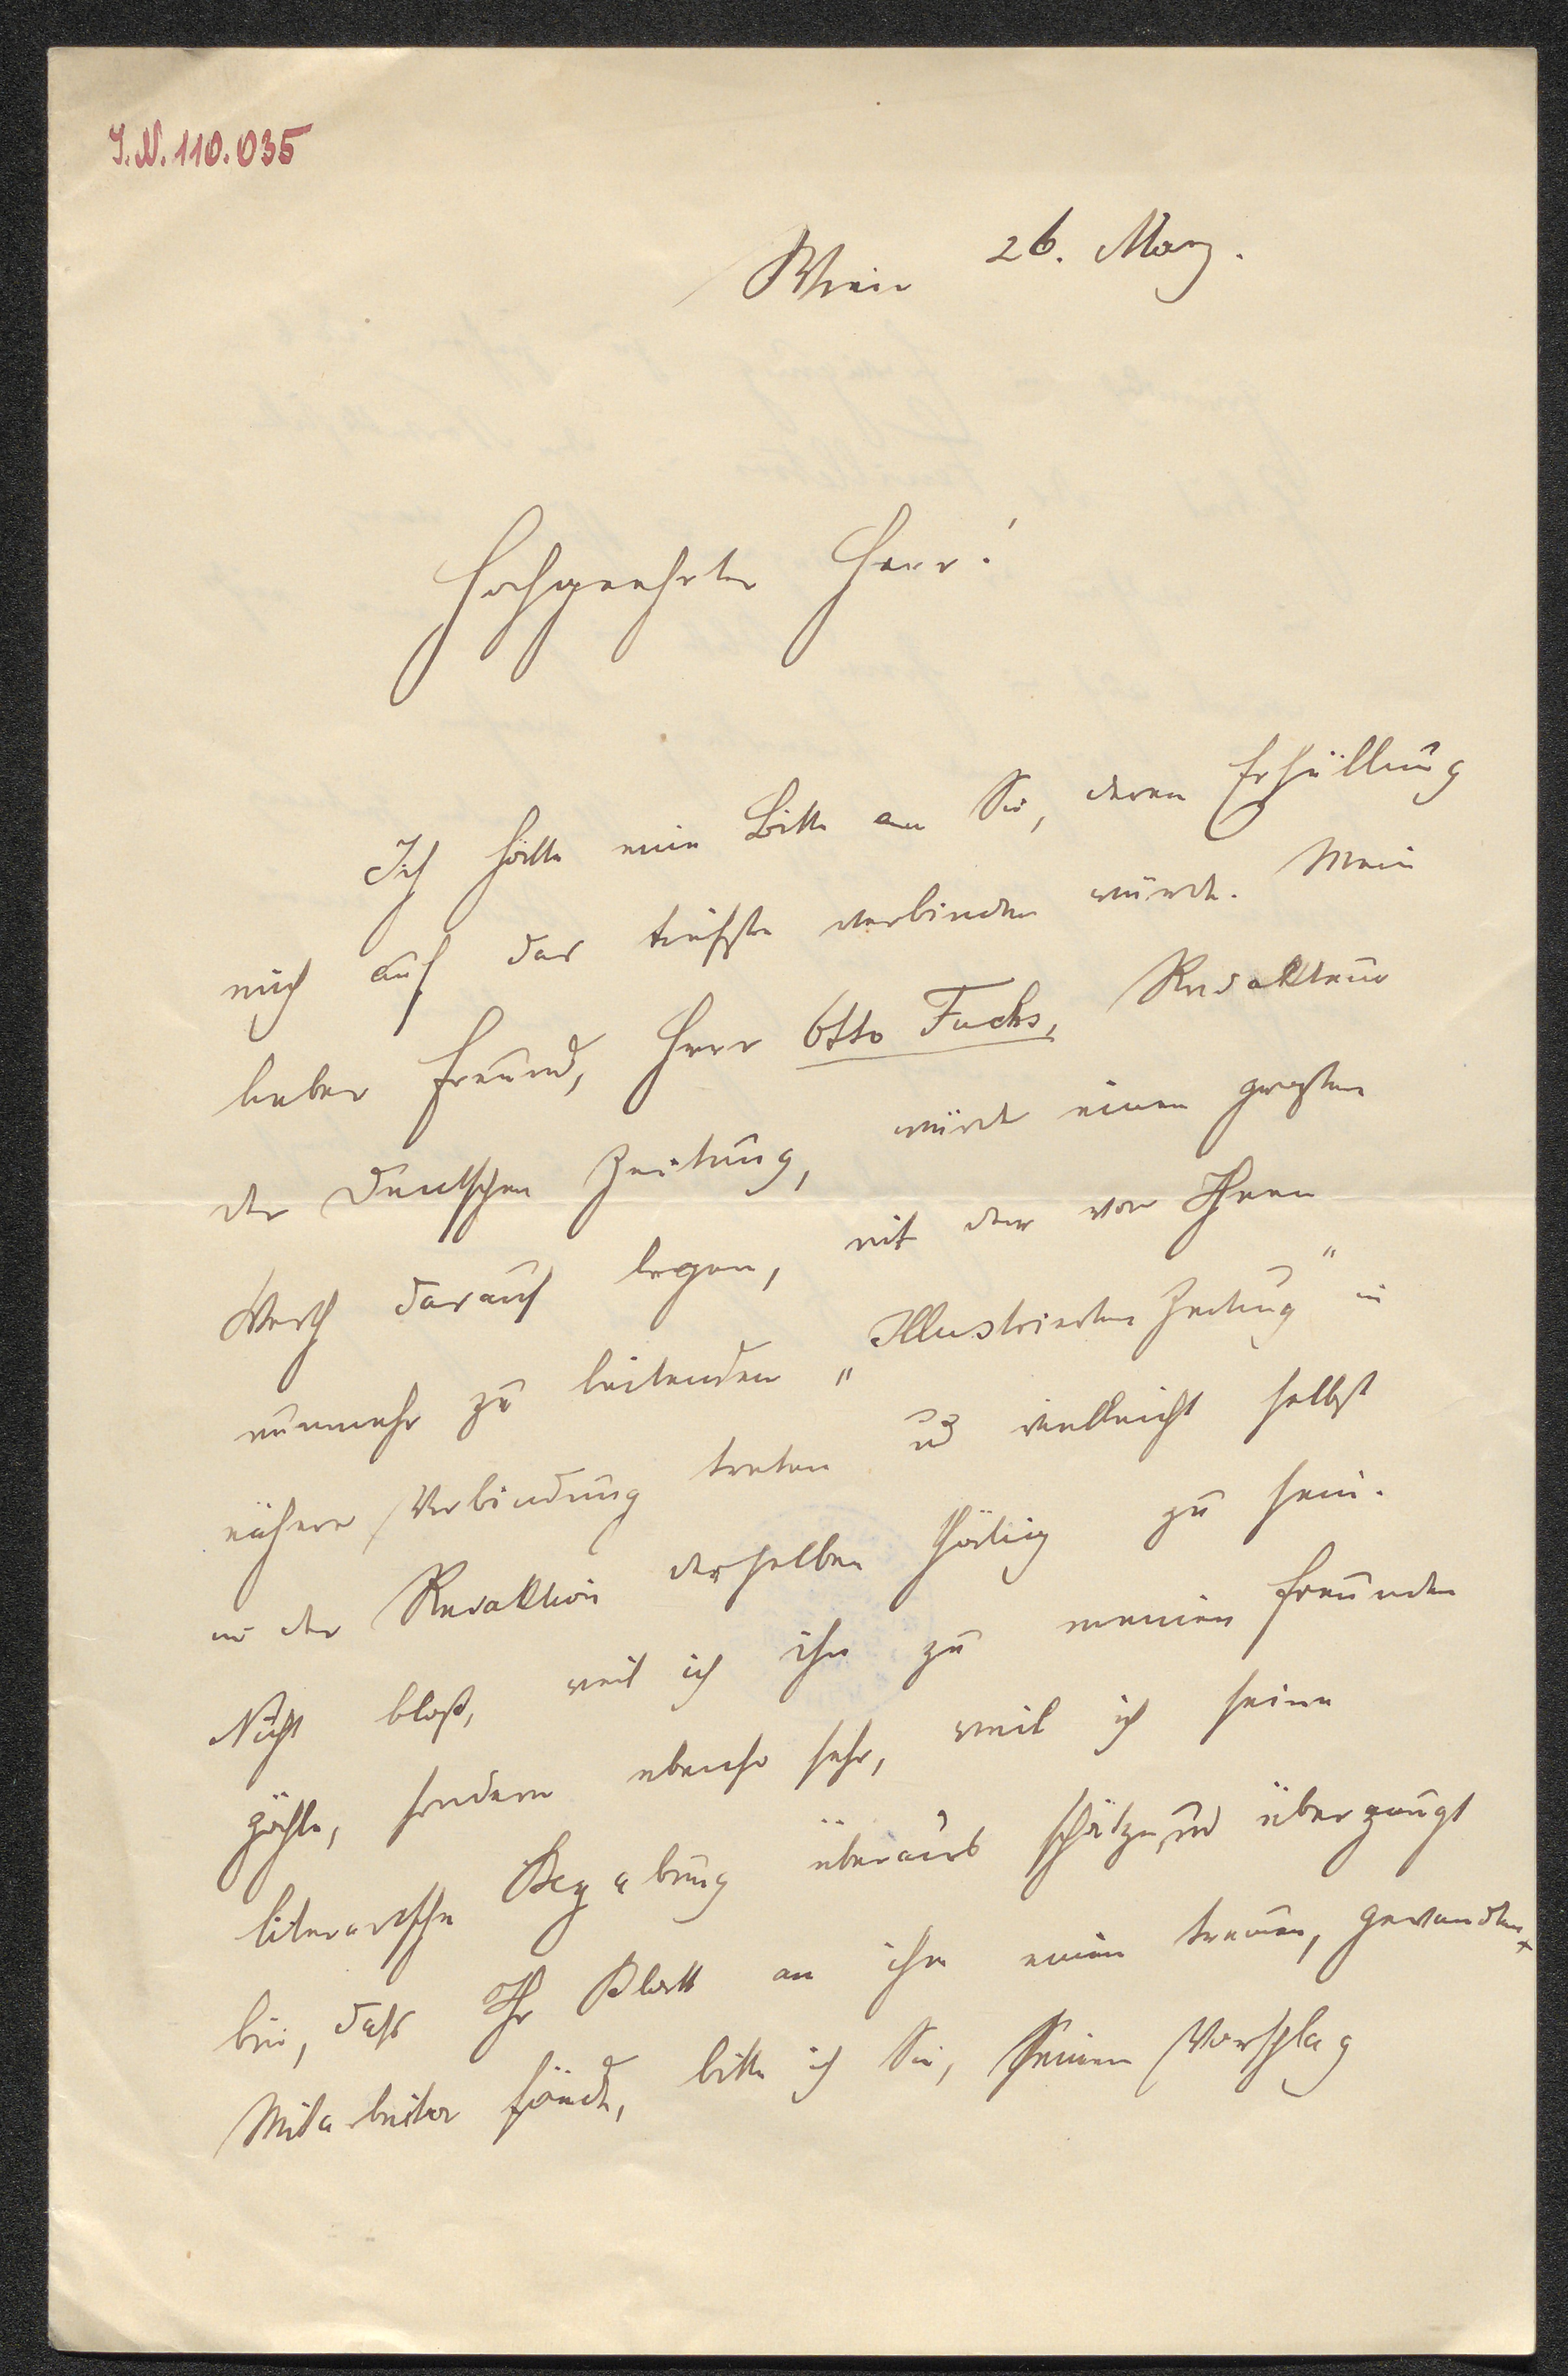 I.N. 110.035
Wien 26. März.
Hochgeehrter Herr!
Ich hätte eine Bitte an Sie, deren Erfüllung
mich auf das tiefste verbinden würde. Mein
lieber Freund, Herr Otto Fuchs, Redakteur
der Deutschen Zeitung, würde einen großen
Werth darauf legen, mit der von Ihnen
nunmehr zu leitenden „Illustrierten Zeitung" in
nähere Verbindung treten und vielleicht selbst
in der Redaktion derselben thätig zu sein.
Nicht bloß, weil ich ihn zu meinen Freunden
zähle, sondern ebenso sehr, weil ich seine
literarische Begabung überaus schätze und überzeugt
bin, daß Ihr Blatt an ihm einen treuen, gewandten
Mitarbeiter fände, bitte ich Sie, seinen Vorschlag